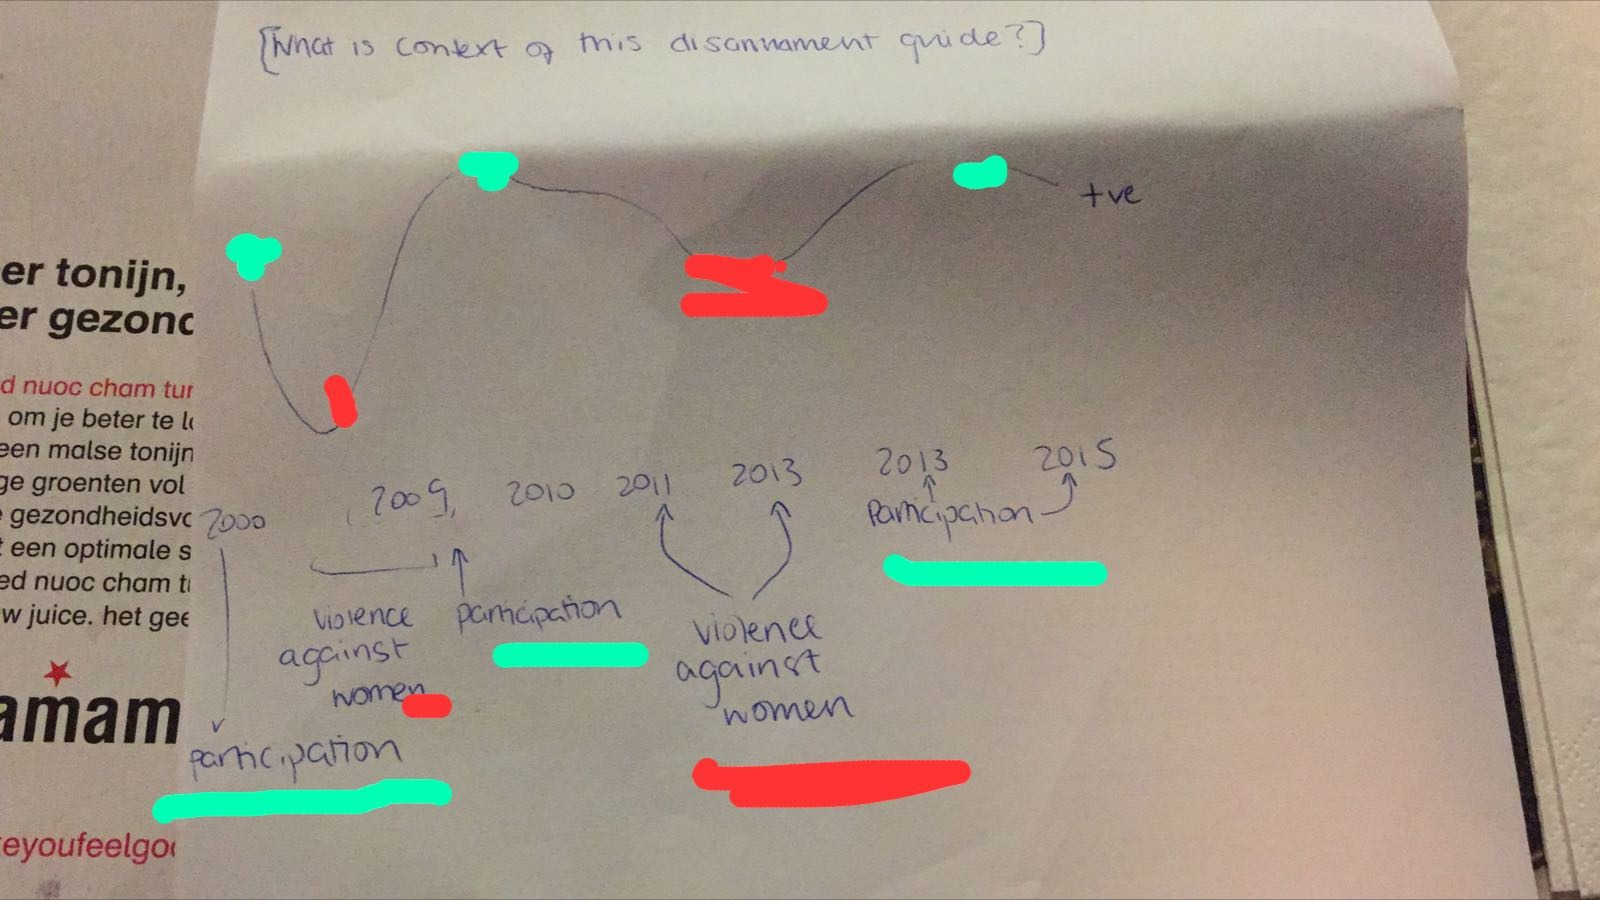 [What is context of this disarmament guide?]
+ve
2000
2009,
2010
2011
2013
2013
2015
Participation
violence
against
women
participation
violence
against
women
participation
er tonijn,
er gezond
d nuoc cham tur
om je beter te
een malse tonijn
ge groenten vol
gezondheidsvo
t een optimale s
ed nuoc cham
w juice. het gee
amam
eyoufeelgoo